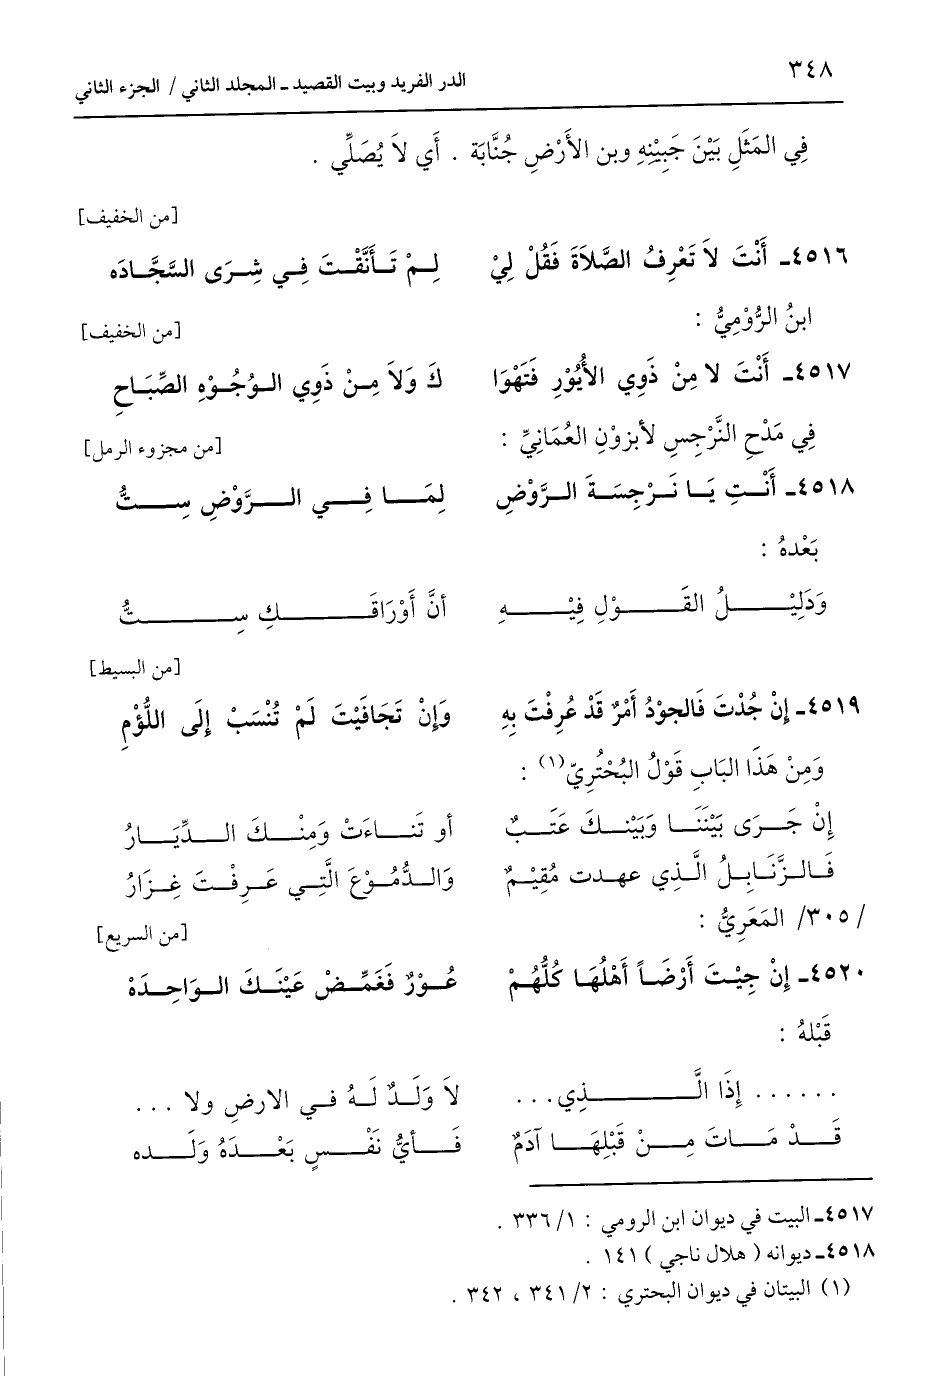 ٣٤٨
الدر الفريد وبيت القصيد ـ المجلد الثاني / الجزء الثاني
فِي المَثَلِ بَيْنَ جَبِيْنِهِ وبن الأَرْضِ جُنَّابَة . أَي لاَ يُصَلِّي .
[من الخفيف]
٤٥١٦ـ أَنْتَ لاَ تَعْرِفُ الصَّلاَةَ فَقُلْ لِيْ لِمْ تَأَنَّقْتَ فِي شِرَى السَّجَّادَه
ابنُ الرُّوْمِيُّ :
[من الخفيف]
٤٥١٧ـ أَنْتَ لا مِنْ ذَوِي الأُيُوْرِ فَتَهْوَا كَ وَلاَ مِنْ ذَوِي الوُجُوْهِ الصِّبَاحِ
فِي مَدْحِ النَّرْجِسِ لأبزوْنِ العُمَانِيِّ :
[من مجزوء الرمل]
٤٥١٨ـ أَنْتِ يَا نَرْجِسَةَ الرَّوْضِ لِمَا فِي الرَّوْضِ سِتُّ
بَعْدهُ :
وَدَلِيْلُ القَوْلِ فِيْهِ أنَّ أَوْرَاقَكِ سِتُّ
[من البسيط]
٤٥١٩ـ إِنْ جُدْتَ فَالجوْدُ أَمْرٌ قَدْ عُرِفْتَ بِهِ وَإِنْ تَجَافَيْتَ لَمْ تُنْسَبْ إِلَى اللُّؤْمِ
وَمِنْ هَذَا البَابِ قَوْلُ البُحْتُرِيّ(١) :
إِنْ جَرَى بَيْنَنَا وَبَيْنكَ عَتَبٌ أو تَناءَتْ وَمِنْكَ الدِّيَارُ
فَالزَّنَابِلُ الَّذِي عهدت مُقِيْمٌ وَالدُّمُوْعَ الَّتِي عَرِفْتَ غِزَارُ
/٣٠٥/ المَعَرِيُّ :
[من السريع]
٤٥٢٠ـ إِنْ جِيْتَ أَرْضَاً أَهْلُهَا كُلُّهُمْ عُوْرٌ فَغَمِّضْ عَيْنَكَ الوَاحِدَهْ
قَبْلهُ :
...... إِذَا الَّذِي... لاَ وَلَدٌ لَهُ في الارضِ ولا ...
قَدْ مَاتَ مِنْ قَبْلِهَا آدَمٌ فَأيُّ نَفْسٍ بَعْدَهُ وَلَده
٤٥١٧ـ البيت في ديوان ابن الرومي : ١/ ٣٣٦ .
٤٥١٨ـ ديوانه ( هلال ناجي ) ١٤١ .
(١) البيتان في ديوان البحتري : ٢/ ٣٤١ ، ٣٤٢ .